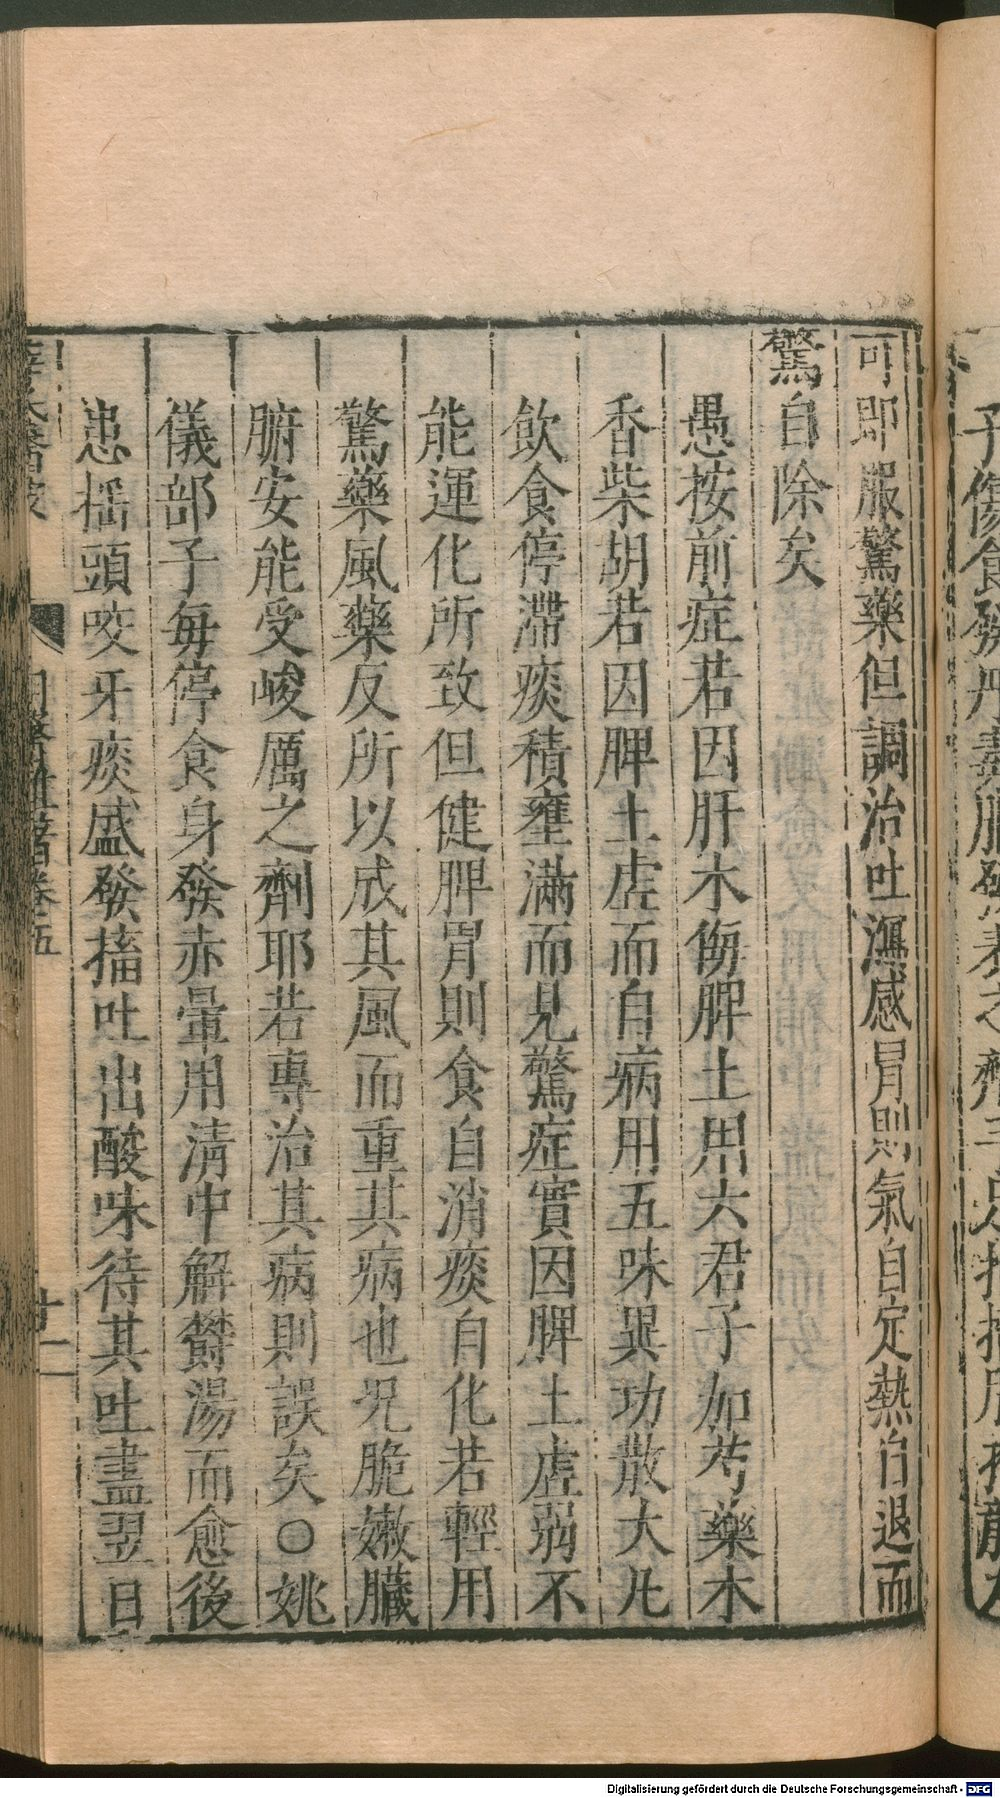 可即服驚藥但調治吐瀉感冒則氣自定熱自退而
驚自除矣
愚按前症若因肝木侮脾土用六君子加芍藥木
香柴胡若因脾土虛而自病用五味異功散大凡
飲食停滯痰積壅滿而見驚症實因脾土虛弱不
能運化所致但健脾胃則食自消痰自化若輕用
驚藥風藥反所以成其風而重其病也況脆嫩臟
腑安能受峻厲之劑耶若專治其病則誤矣○姚
儀部子毎停食身發赤暈用清中解欝湯而愈後
患揺頭咬牙痰盛發搐吐出酸味待其吐盡翌日
卷五
廿一
子傷食發丹毒服發表之劑
Digitalisierung gefördert durch die Deutsche Forschungsgemeinschaft - DFG